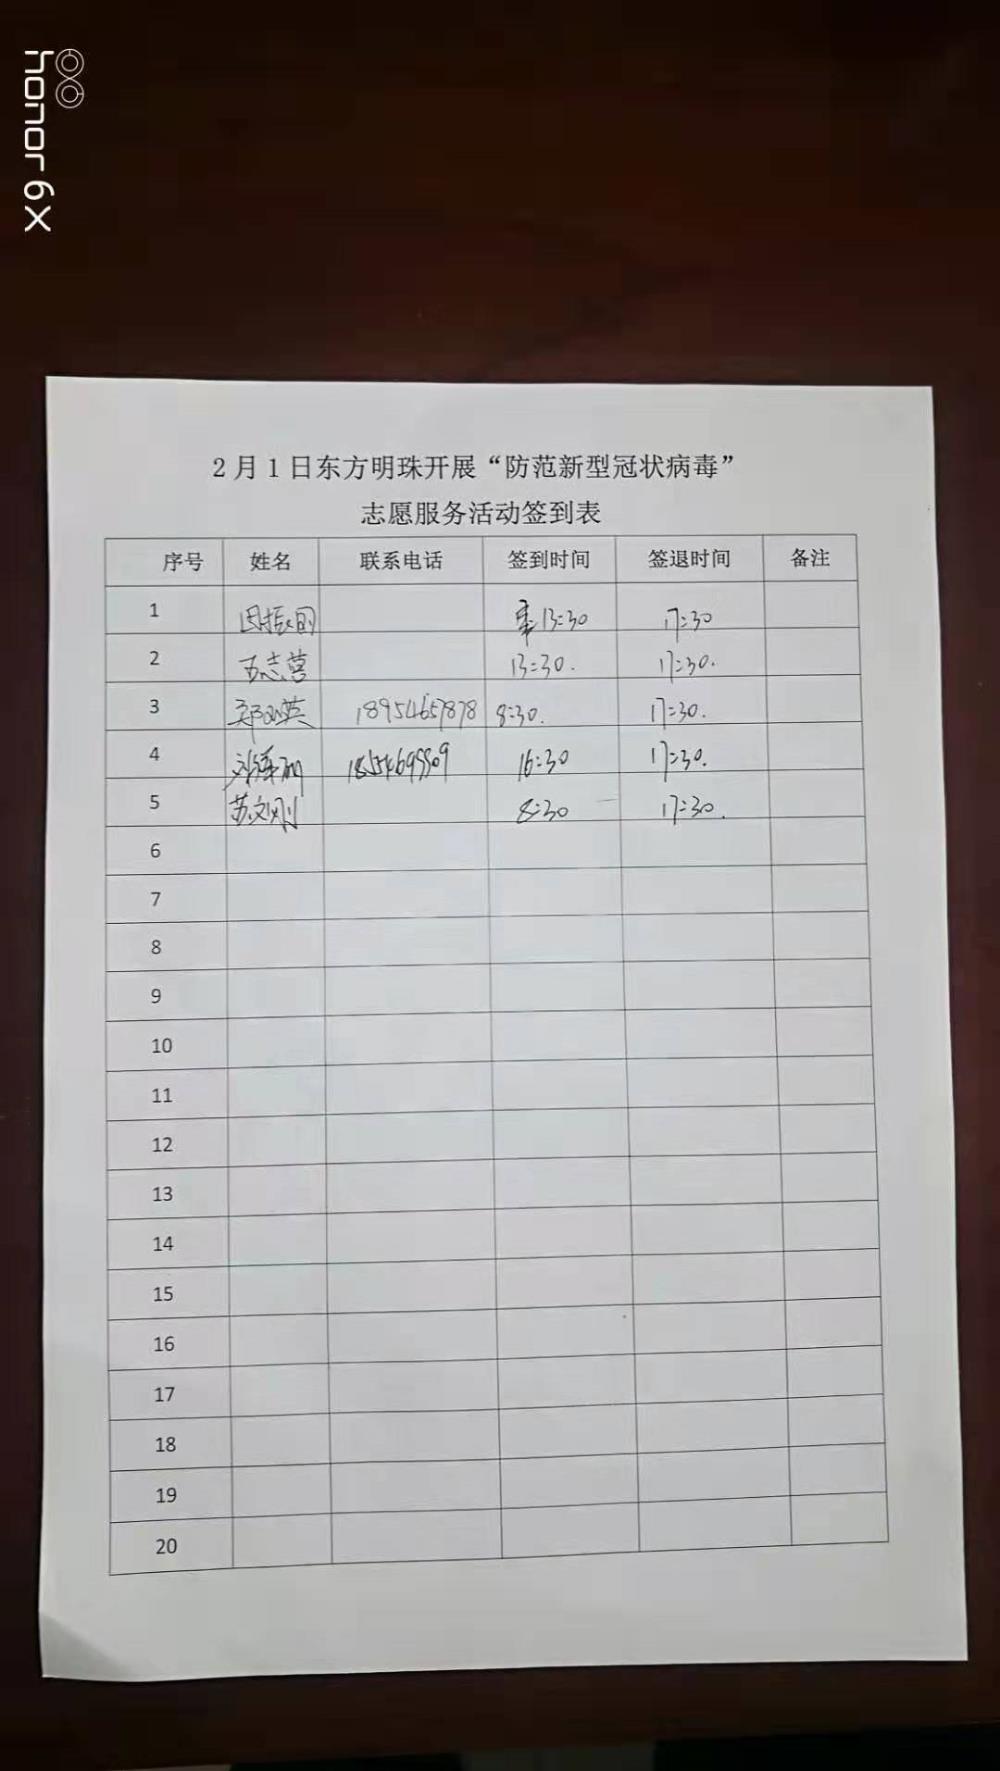 honor 6X
2月1日东方明珠开展“防范新型冠状病毒”
志愿服务活动签到表
序号 姓名 联系电话 签到时间 签退时间 备注
1 田振国 13:30 17:30
2 王志营 13:30. 17:30.
3 18954657878 8:30. 17:30.
4 16:30 17:30.
5 苏文刚 8:30 17:30.
6
7
8
9
10
11
12
13
14
15
16
17
18
19
20